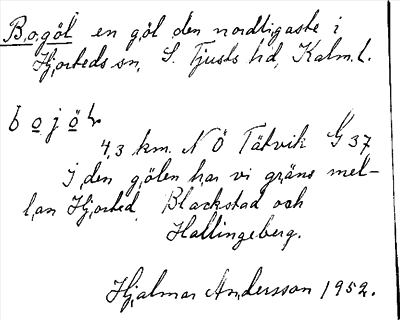 Bogöl en göl den nordligaste i
Hjorteds sn, S. Tjusts hd, Kalm.l.
bojöl
4,3 km. NÖ Tätvik G 37
I den gölen har vi gräns mel-
lan Hjorted Blackstad och
Hallingeberg.
Hjalmar Andersson 1952.